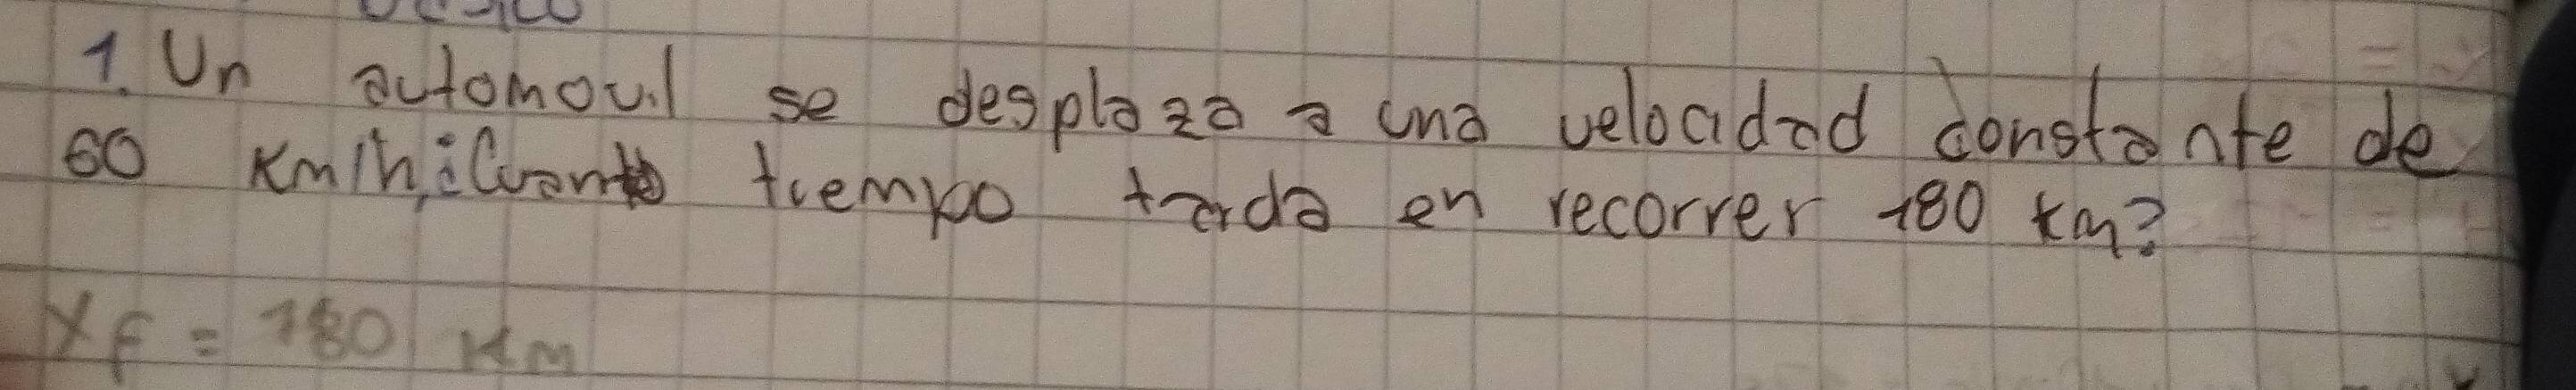 1. Un automovil se desplaza a una velocidad constante de
60 Km/h, ¿Cuanto tiempo tarda en recorrer 180 km?
Xf = 180 Km